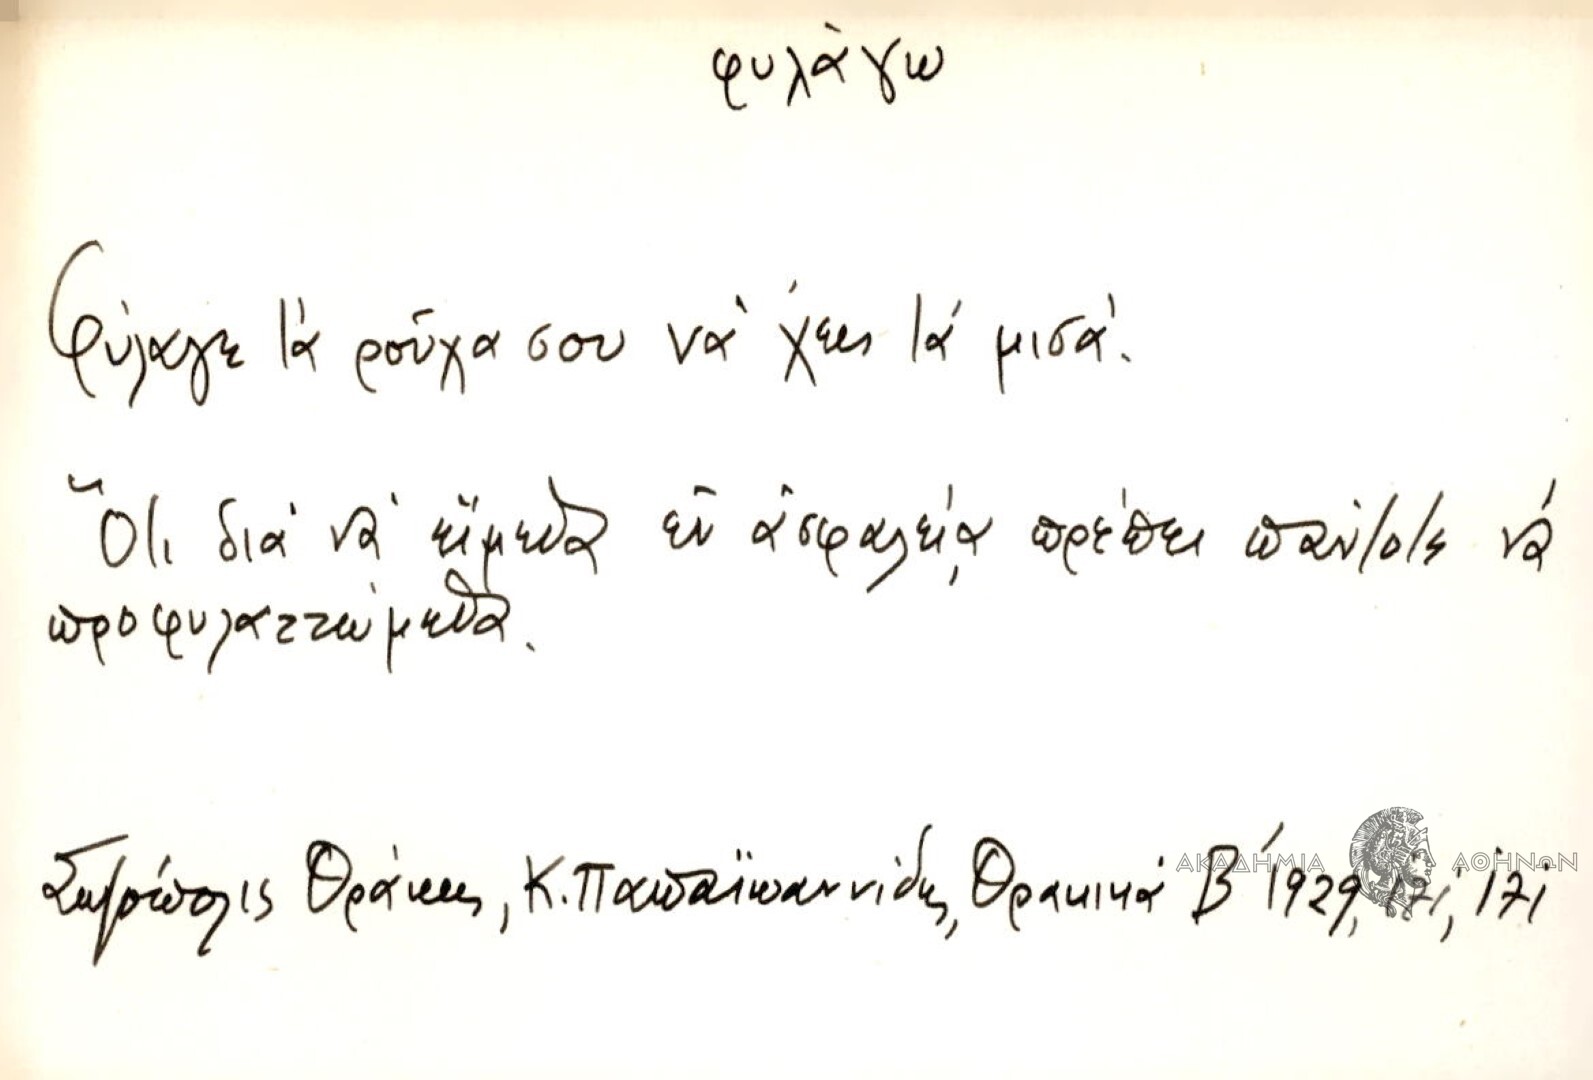 φυλάγω
Φύλαγε τά ροῦχα σου νά 'χεις τά μισά.
Ὅτι διά νά εἴμεθα ἐν ἀσφαλείᾳ πρέπει πάντοτε νά
προφυλαττώμεθα.
Θράκης, Κ. Παπαϊωαννίδης, Θρακικά Β' 1929,
ΑΚΑΔΗΜΙΑ ΑΘΗΝΩΝ